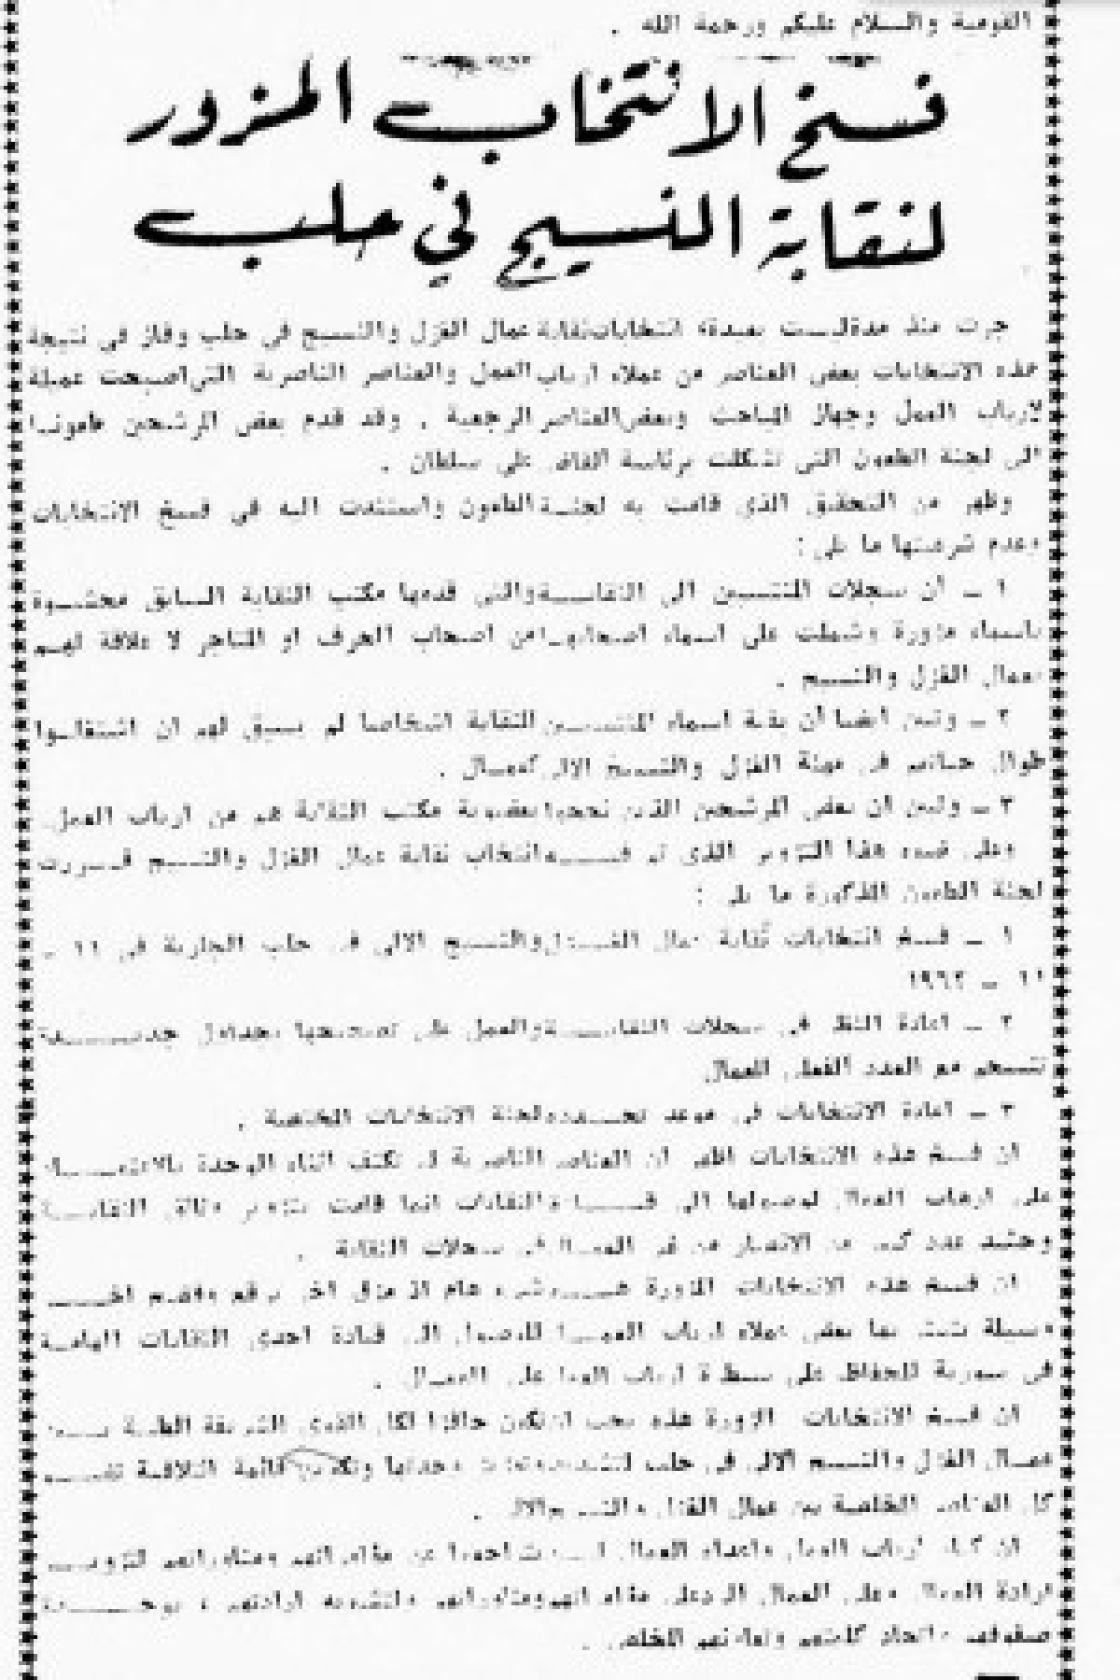 القومية والسلام عليكم ورحمة الله .
فسخ الانتخاب المزور
لنقابة النسيج في حلب
جرت منذ مدة ليست بعيدة، انتخابات نقابة عمال الغزل والنسيج في حلب وفاز في نتيجة
هذه الانتخابات بعض العناصر من عملاء ارباب العمل والعناصر الناصرية التي اصبحت عميلة
لارباب العمل وجهاز المباحث وبعض العناصر الرجعية . وقد قدم بعض المرشحين طعونا
الى لجنة الطعون التي تشكلت برئاسة القاضي علي سلطان .
وظهر من التحقيق الذي قامت به لجنة الطعون واستندت اليه في فسخ الانتخابات
وعدم شرعيتها ما يلي :
١ ـ ان سجلات المنتسبين الى النقابة والتي قدمها مكتب النقابة السابق محشوة
باسماء مزورة وشملت على اسماء اصحابها من اصحاب الحرف او المتاجر لا علاقة لهم
بعمال الغزل والنسيج .
٢ ـ وتبين ايضا أن بقية اسماء المنتسبين للنقابة اشخاصا لم يسبق لهم ان اشتغلوا
طوال حياتهم في مهنة الغزل والنسيج الالي كعمال .
٣ ـ وتبين ان بعض المرشحين الذين نجحوا بعضوية مكتب النقابة هم من ارباب العمل
وعلى ضوء هذا التزوير الذي تم فيه انتخاب نقابة عمال الغزل والنسيج قررت
لجنة الطعون المذكورة ما يلي :
١ ـ فسخ انتخابات نقابة عمال الغزل والنسيج الالي في حلب الجارية في ١١ ـ
١١ ـ ١٩٦٢
٢ ـ اعادة النظر في سجلات النقابة والعمل على تصحيحها بجداول جديدة
تنسجم مع العدد الفعلي للعمال
٣ ـ اعادة الانتخابات في موعد تحدده لجنة الانتخابات المختصة .
ان فسخ هذه الانتخابات اظهر ان العناصر الناصرية لم تكتف اثناء الوحدة بالاعتماد
على ارهاب العمال لوصولها الى قيادة النقابات انما قامت بتزوير وثائق النقابة
وحشد عدد كبير من الانصار من غير العمال في سجلات النقابة .
ان فسخ هذه الانتخابات المزورة
وسيلة بعض عملاء ارباب العمل للوصول الى قيادة احدى النقابات الهامة
في سورية للحفاظ على سيطرة ارباب العمل على العمال .
ان فسخ الانتخابات المزورة هذه يجب ان تكون حافزا لكل القوى الشريفة الطيبة بين
عمال الغزل والنسيج الالي في حلب وحدتها قائمة ائتلافية تضم
كل العناصر المخلصة بين عمال الغزل والنسيج الالي .
ان ارباب العمل واعداء العمال مؤامراتهم ومناوراتهم لتزوير
ارادة العمال وعلى العمال الرد على مؤامراتهم ومناوراتهم ولتشويه ارادتهم ، بوحدة
صفوفهم واتحاد كلمتهم وتعاونهم المخلص .